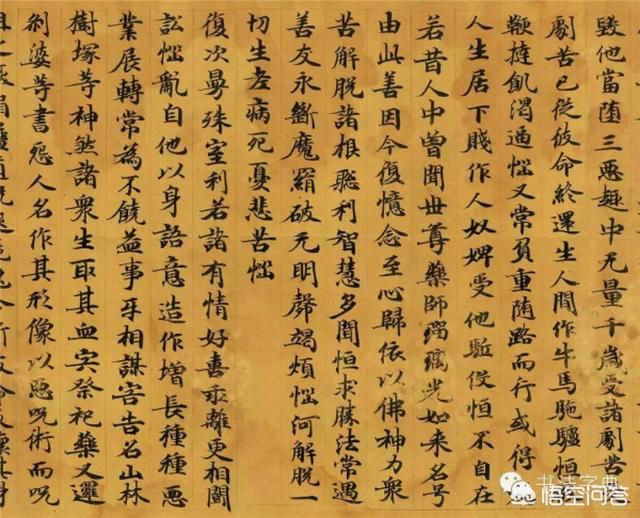 毀他當隨三惡趣中无量千歲受諸劇苦
劇苦已從彼命終還生人間作牛馬駞驢恒
鞭撻飢渴逼惱又常負重隨路而行或得
人生居下賤作人奴婢受他駈伇恒不自在
若昔人中曾聞世尊藥師瑠璃光如来名号
由此善因今復憶念至心歸依以佛神力衆
苦解脫諸根聦利智慧多聞恒求勝法常遇
善友永斷魔羂破无明㲉竭煩惱河解脫一
切生老病死憂悲苦惱
復次曼殊室利若諸有情好喜乖離更相鬪
訟惱亂自他以身語意造作增長種種惡
業展轉常為不饒益事互相謀害告召山林
樹塚等神煞諸衆生取其血宍祭祀藥叉邏
刹娑等書怨人名作其形像以惡呪術而呪
书法字典
悟空问答